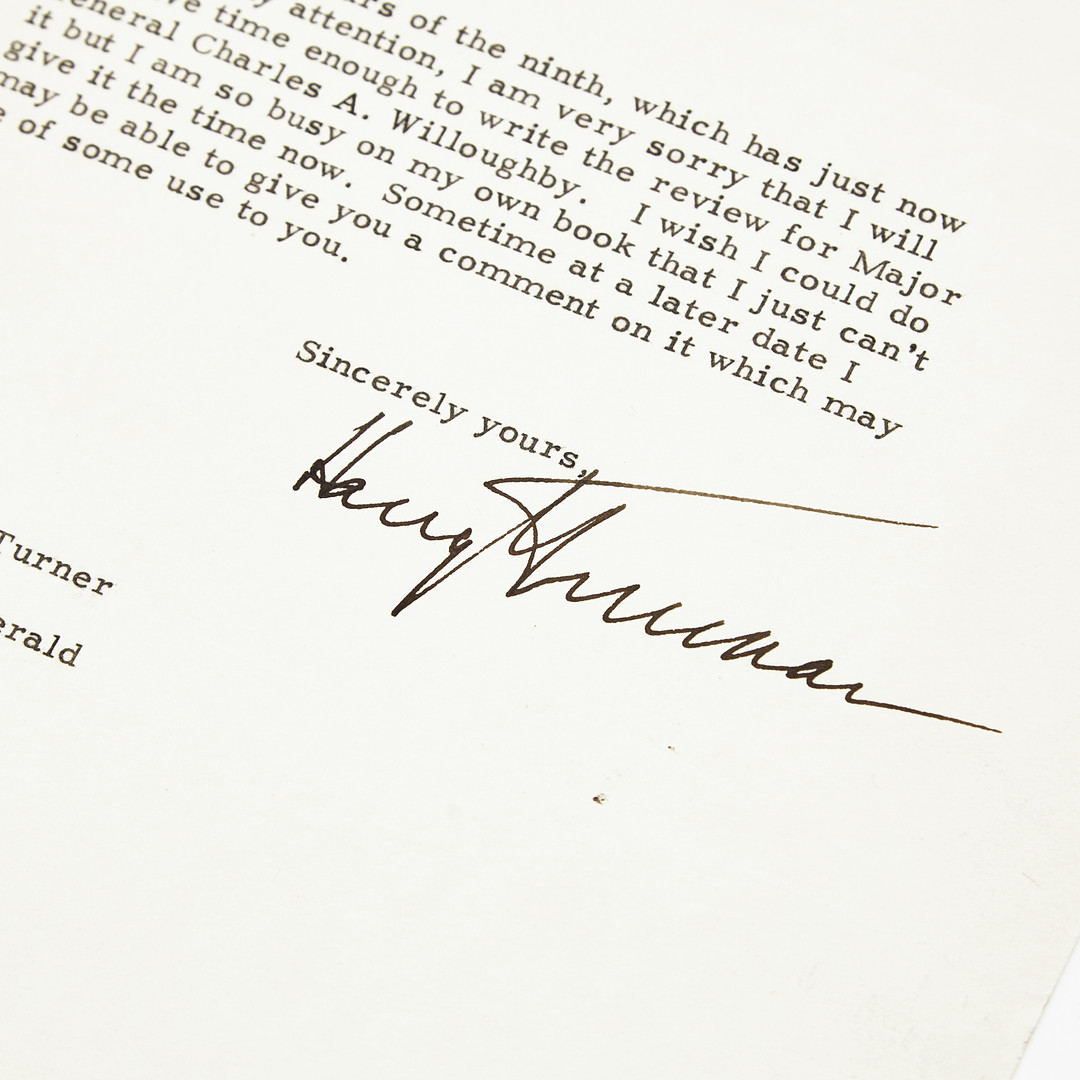 rs of the ninth, which has just now
y attention, I am very sorry that I will
ve time enough to write the review for Major
eneral Charles A. Willoughby. I wish I could do
it but I am so busy on my own book that I just can't
give it the time now. Sometime at a later date I
may be able to give you a comment on it which may
e of some use to you.
Sincerely yours,
Harry S Truman
Turner
erald